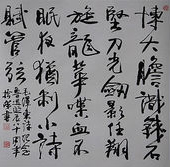 博大膽識鐵石
堅刀光劍影任翔
旋龍華喋血不
眠夜猶制小詩
賦管弦